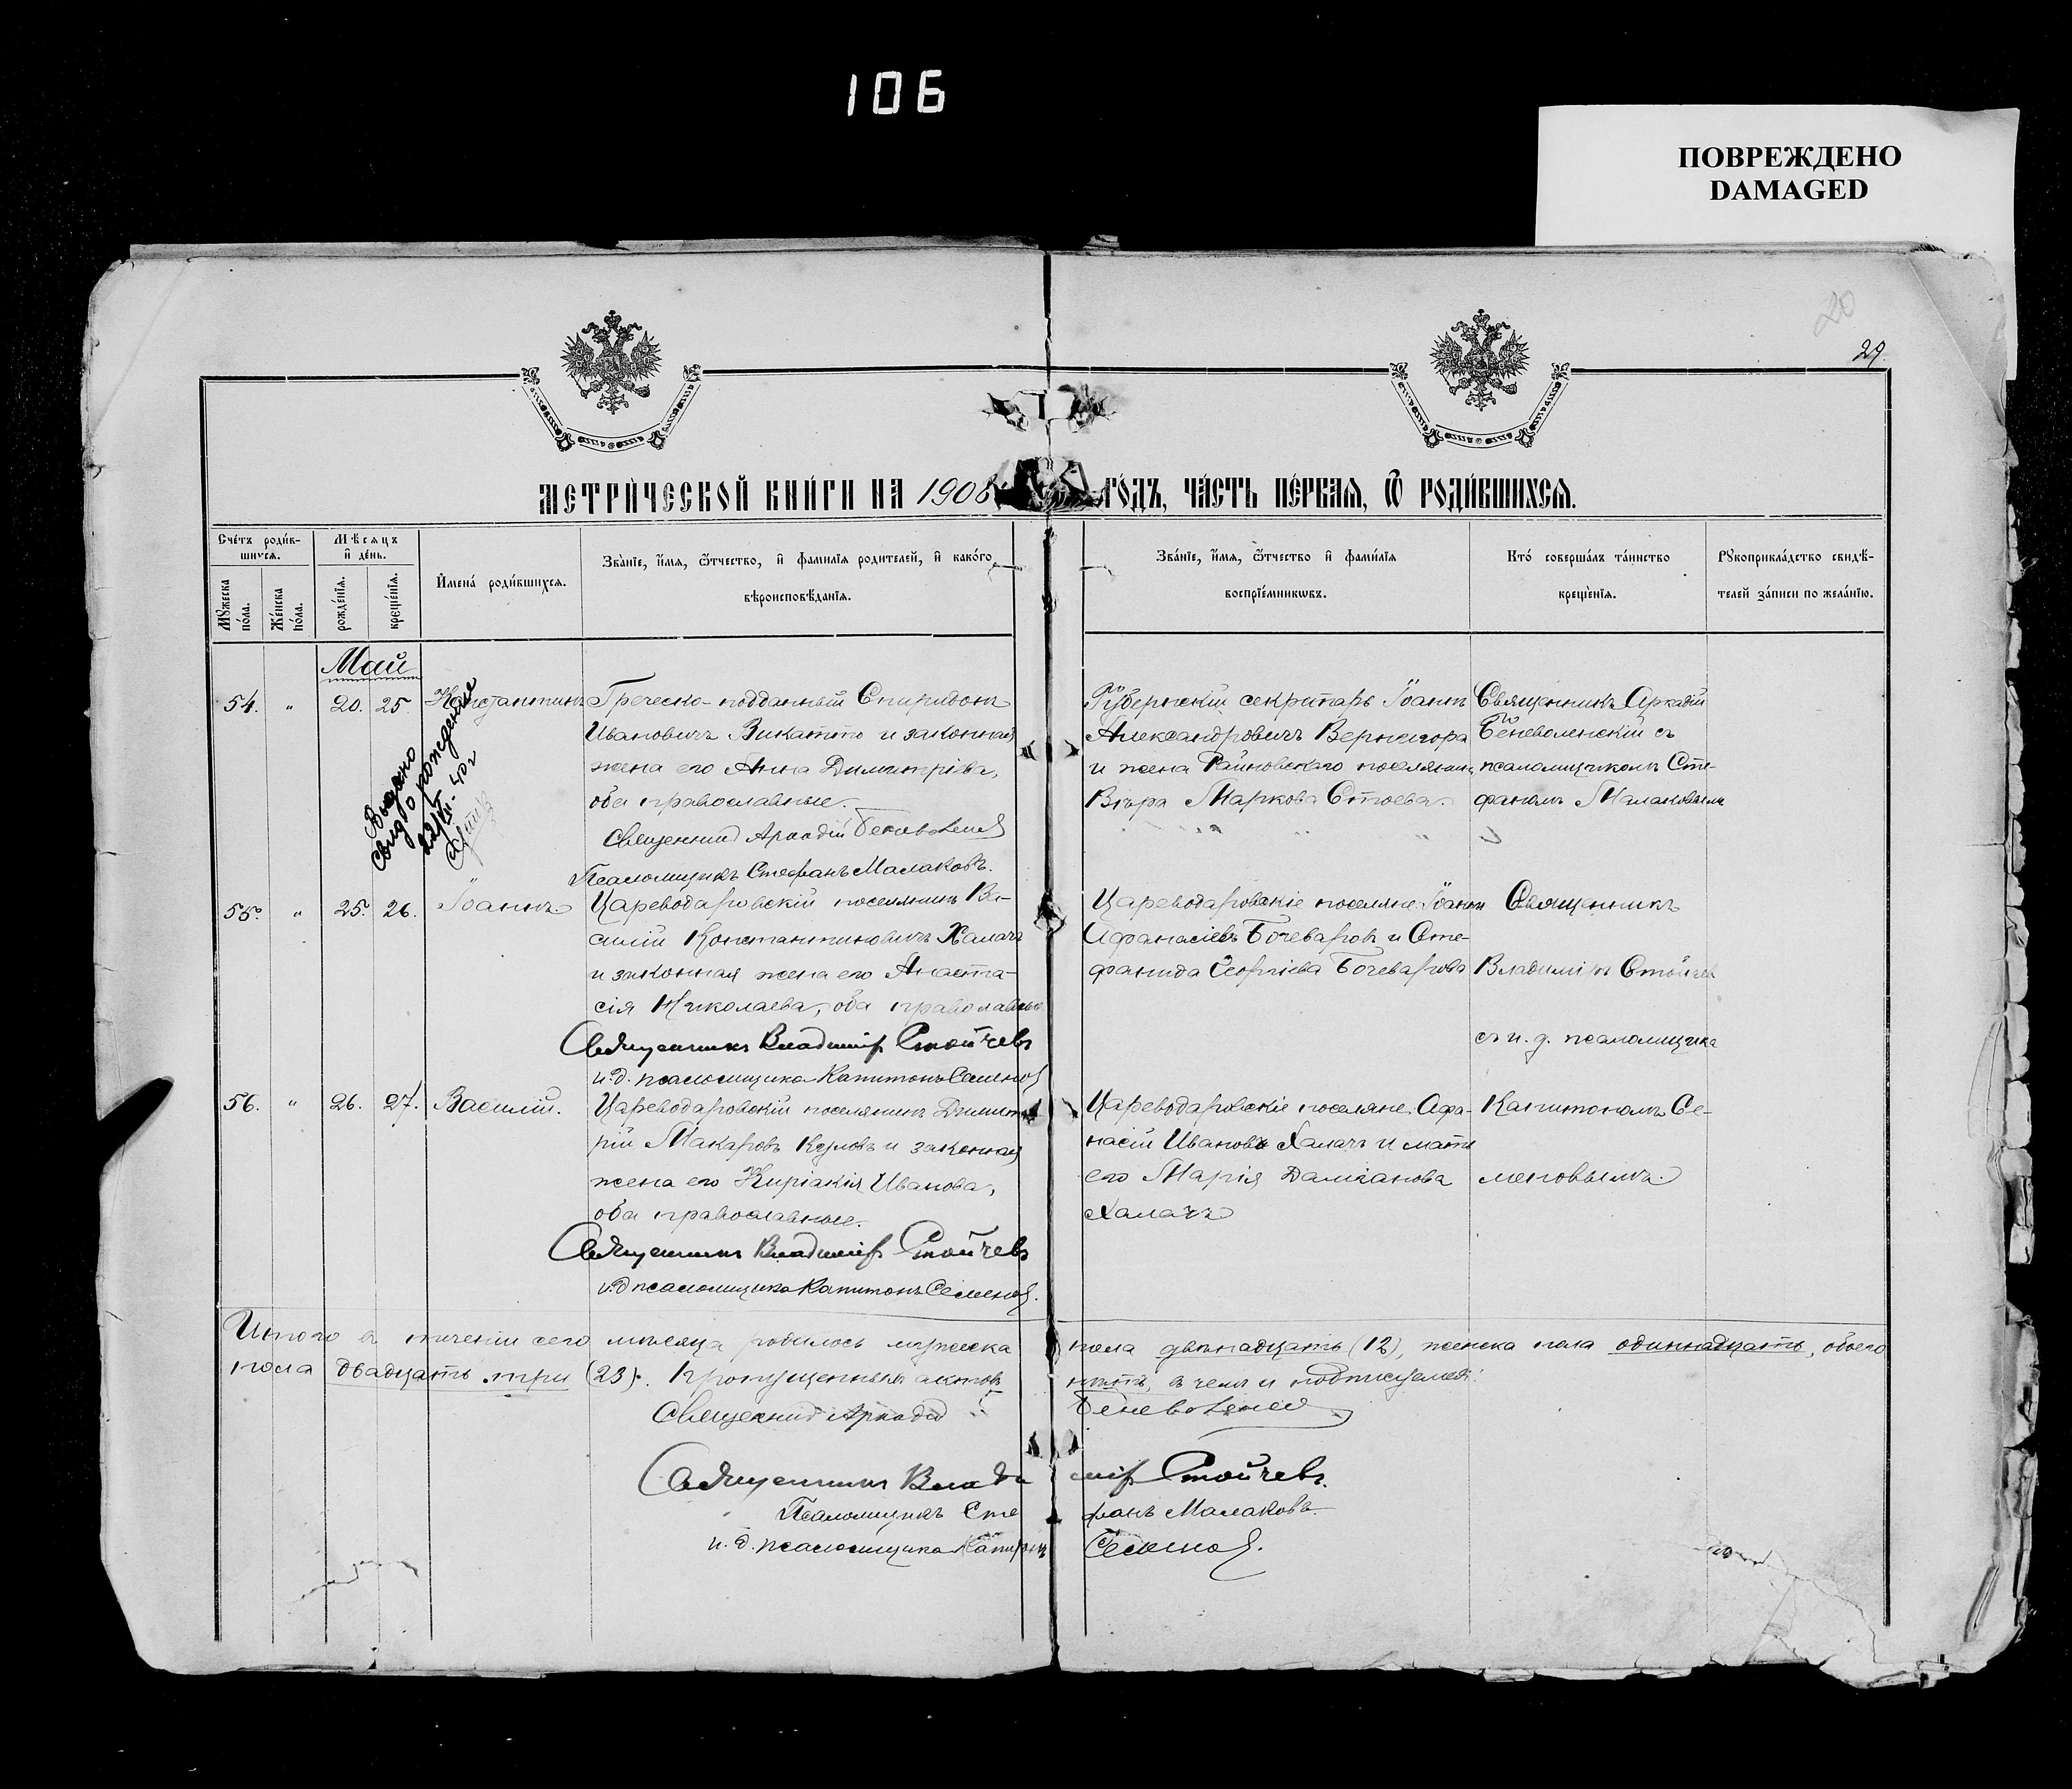 106
ПОВРЕЖДЕНО
DAMAGED
20
29
МЕТРИ́ЧЕСКОЙ КНИ́ГИ НА 1908
ГО́ДЪ, ЧА́СТЬ ПЕ́РВАЯ, Ѿ РОДИ́ВШИХСЯ.
Сче́тъ роди́в-
шихся.
Мѣ́сяцъ
и҆ де́нь.
Мꙋ́жеска по́ла.
Же́нска по́ла.
рожде́нїя.
креще́нїя.
И҆мена̀ роди́вшихся.
Зва́нїе, и҆́мя, ѻ҆́тчество, и҆ фамилїя родителей, и҆ како́го
вѣроисповѣ́данїя.
Зва́нїе, и҆́мя, ѻ҆́тчество и҆ фами́лїя
воспрїе́мникѡвъ.
Кто́ соверша́лъ та́инство
креще́нїя.
Рꙋкоприкла́дство свидѣ́-
телей за́писи по жела́нїю.
Май
54. " 20. 25. Константинъ
Греческо-подданный Спиридонъ
Ивановичъ Викатто и законная
жена его Анна Димитріева,
оба православные.
Священник Аркадій Беневоленс
Псаломщикъ Стефанъ Малаковъ.
Губернскій секретарь Іоаннъ
Александровичъ Вернигора
и жена Раиновскаго поселянина
Вѣра Маркова Стоева.
Священникъ Аркадій
Беневоленскій съ
псаломщикомъ Сте-
фаномъ Малаковымъ
Выдано
свид. о рождении
22/VII-40 г
55. " 25. 26. Іоаннъ.
Цареводаровскій поселянинъ Ва-
силій Константиновичъ Халачъ
и законная жена его Анаста-
сія Николаева, оба православные
Священникъ Владиміръ Стойчевъ
и.д. псаломщика Капитонъ Семенов
Цареводаровскіе поселяне Іоаннъ
Афанасіевъ Бочеваровъ и Сте-
фанида Георгіева Бочеварова
Священникъ
Владиміръ Стойчевъ
съ и. д. псаломщика
56. " 26. 27. Василій.
Цареводаровскій поселянинъ Димит-
рій Макаровъ Козловъ и законная
жена его Киріакія Иванова,
оба православные.
Священникъ Владиміръ Стойчевъ
и.д псаломщика Капитонъ Семенов.
Цареводаровскіе поселяне Афа-
насій Ивановъ Халачъ и мать
его Марія Даміанова
Халачъ
Капитономъ Се-
меновымъ.
Итого въ теченіи сего мѣсяца родилось мужеска пола двѣнадцать (12), женска пола одиннадцать, обоего
пола двадцать три (23). Пропущенныхъ актовъ нѣтъ, въ чемъ и подписуемся:
Священник Аркадій Беневоленс
Священникъ Владиміръ Стойчевъ.
Псаломщикъ Стефанъ Малаковъ.
и. д. псаломщика Капитонъ Семенов.